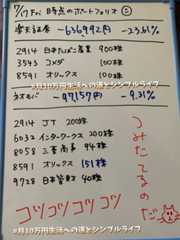 7/17 Fri 時点のポートフォリオ
楽天証券 -636992円 -23.61%
2914 日本たばこ産業 900株
3543 コメダ 100株
8591 オリックス 100株
#月10万円生活への道とシンプルライフ
ネオモバ -97157円 -9.31%
2914 JT 200株
6032 インターワークス 200株
8058 三菱商事 94株
8591 オリックス 151株
9728 日本管財 40株
つみたてるのだ
コツコツコツコツ
#月10万円生活への道とシンプルライフ